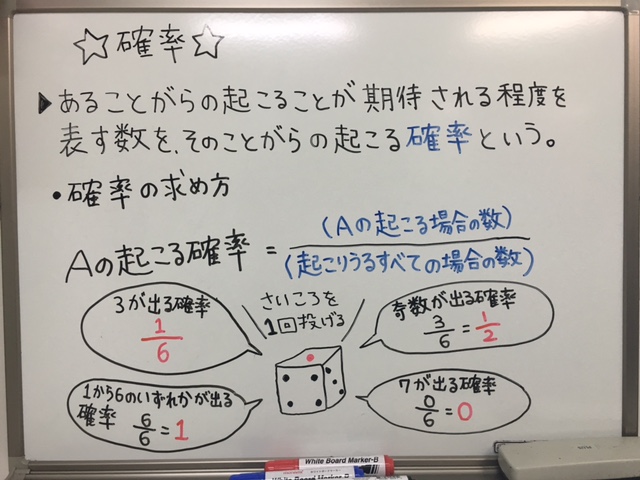 ☆確率☆
▶あることがらの起こることが期待される程度を
表す数を、そのことがらの起こる確率という。
•確率の求め方
Aの起こる確率 = (Aの起こる場合の数) / (起こりうるすべての場合の数)
さいころを
1回投げる
3が出る確率
1/6
奇数が出る確率
3/6 = 1/2
1から6のいずれかが出る
確率 6/6 = 1
7が出る確率
0/6 = 0
White Board Marker-B
White Board Marker-B